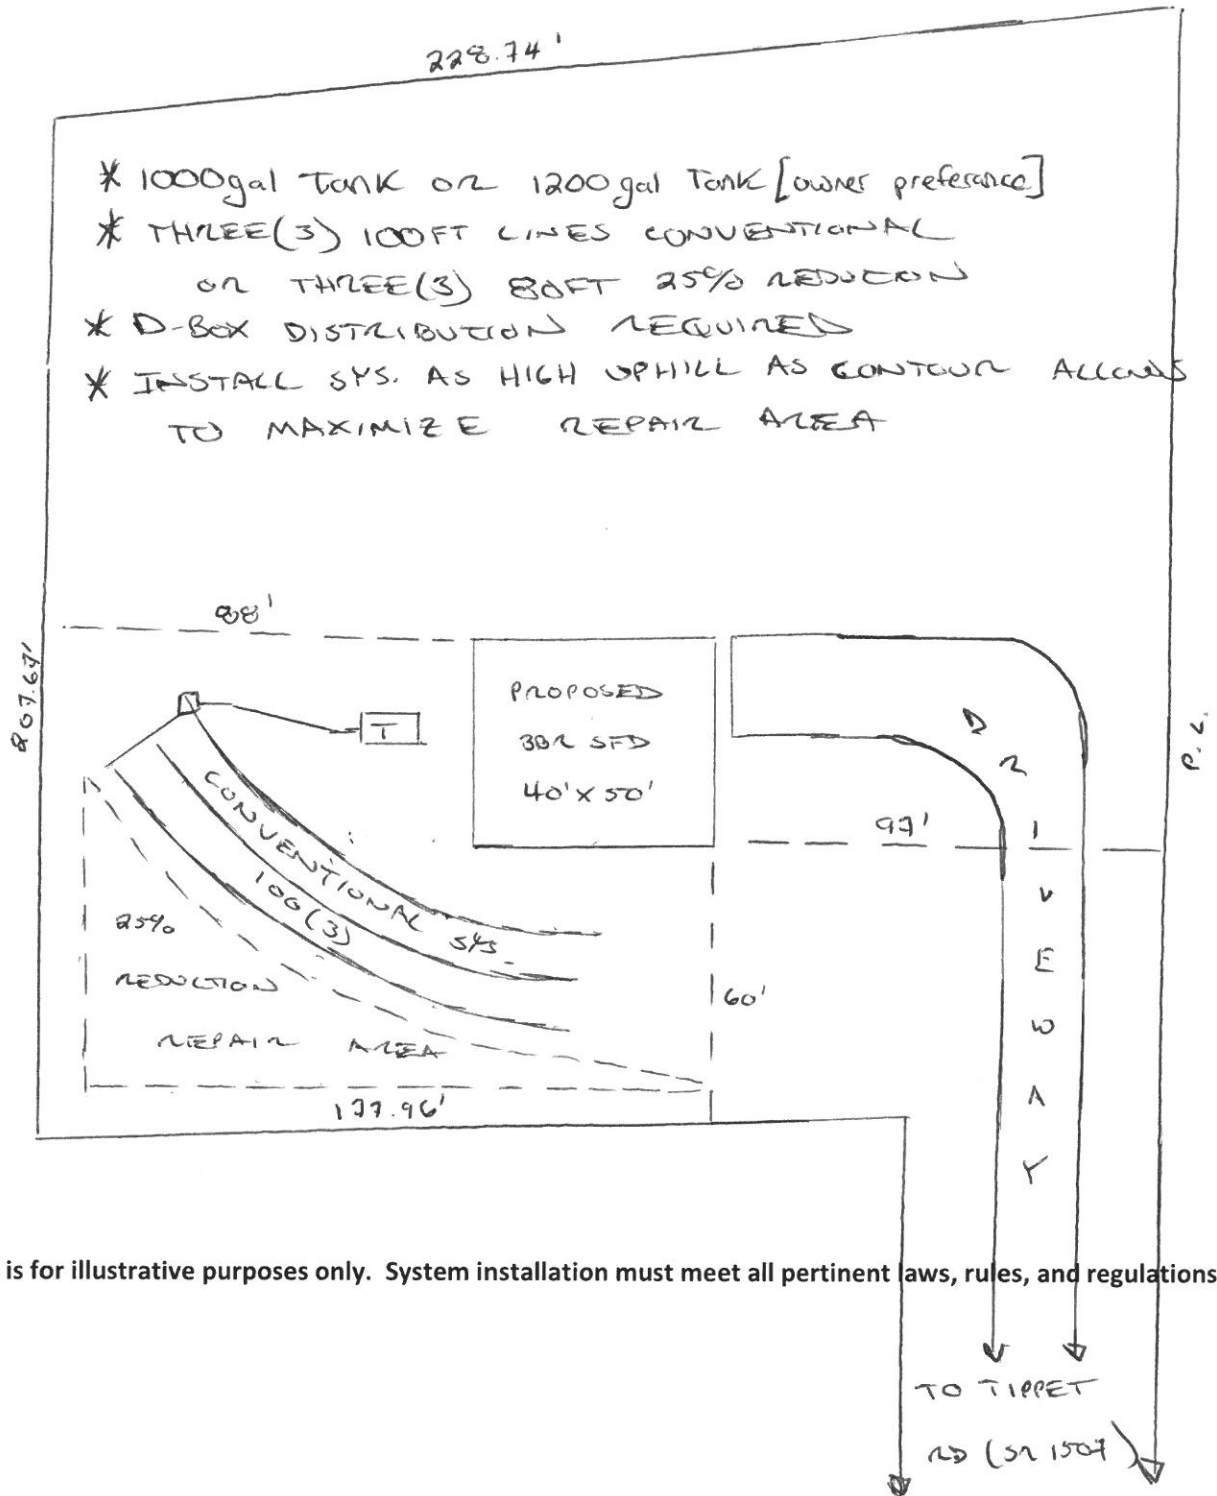 228.74'
* 1000gal Tank or 1200gal Tank [owner preferance]
* THREE(3) 100FT LINES CONVENTIONAL
or THREE(3) 80FT 25% REDUCION
* D-BOX DISTRIBUTION REQUIRED
* INSTALL SYS. AS HIGH UPHILL AS CONTOUR ALLOWS
TO MAXIMIZE REPAIR AREA
88'
PROPOSED
3BR SFD
40'x50'
T
DRIVEWAY
97'
CONVENTIONAL SYS.
100(3)
25%
REDUCTION
REPAIR AREA
60'
177.96'
P.L.
is for illustrative purposes only. System installation must meet all pertinent laws, rules, and regulations
TO TIPPET
RD (SR 1507)